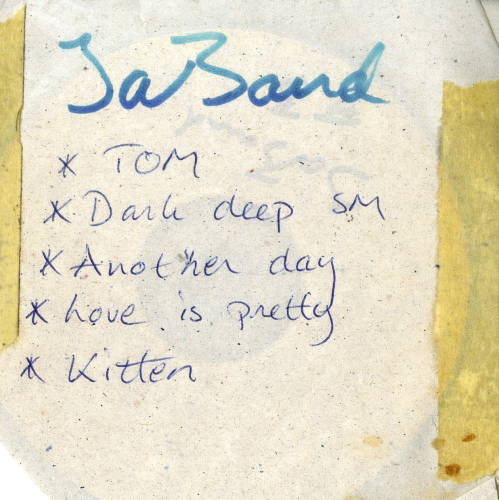 JaBand
* TOM
* Dark deep SM
* Another day
* Love is pretty
* Kitten